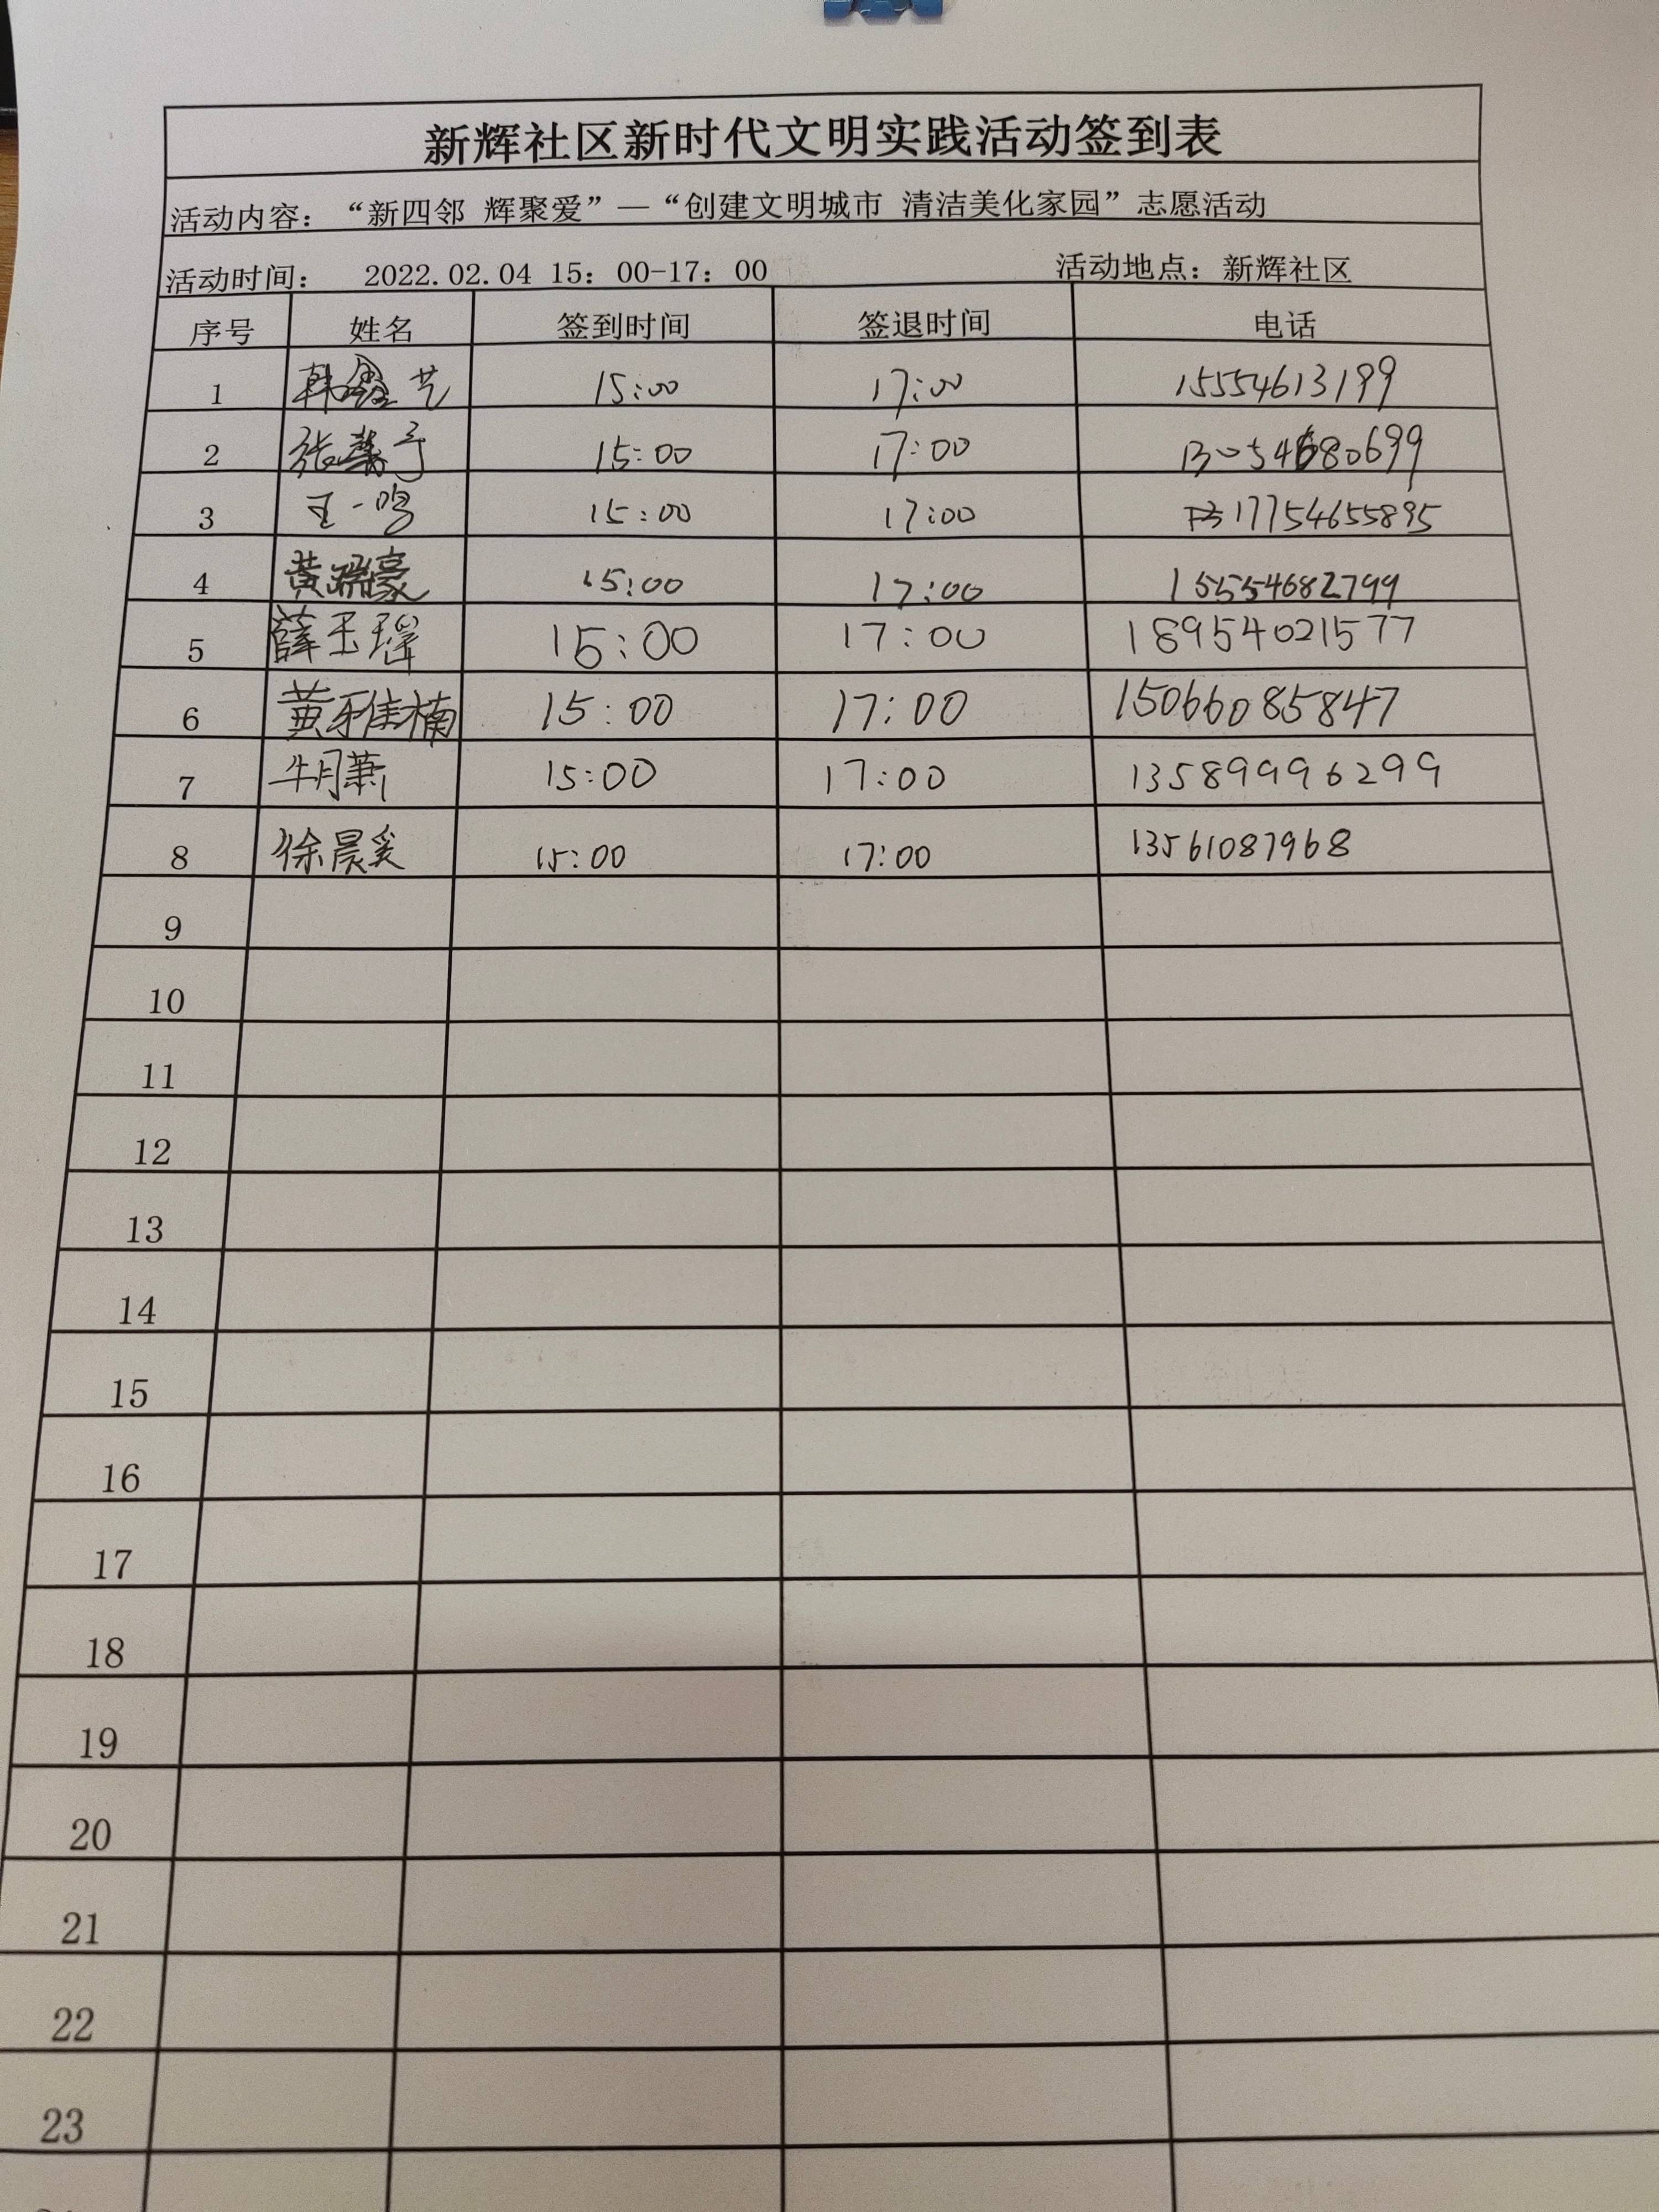 新辉社区新时代文明实践活动签到表
活动内容：“新四邻 辉聚爱”—“创建文明城市 清洁美化家园”志愿活动
活动时间： 2022.02.04 15：00-17：00 活动地点：新辉社区
序号 姓名 签到时间 签退时间 电话
1 韩鑫艺 15:00 17:00 15554613199
2 张馨予 15:00 17:00 13054680699
3 王一鸣 15:00 17:00 17754655895
4 黄瑞豪 15:00 17:00 15554682799
5 薛玉瑶 15:00 17:00 18954021577
6 黄雅楠 15:00 17:00 15066085847
7 牛月萧 15:00 17:00 13589996299
8 徐晨奚 15:00 17:00 13561087968
9
10
11
12
13
14
15
16
17
18
19
20
21
22
23